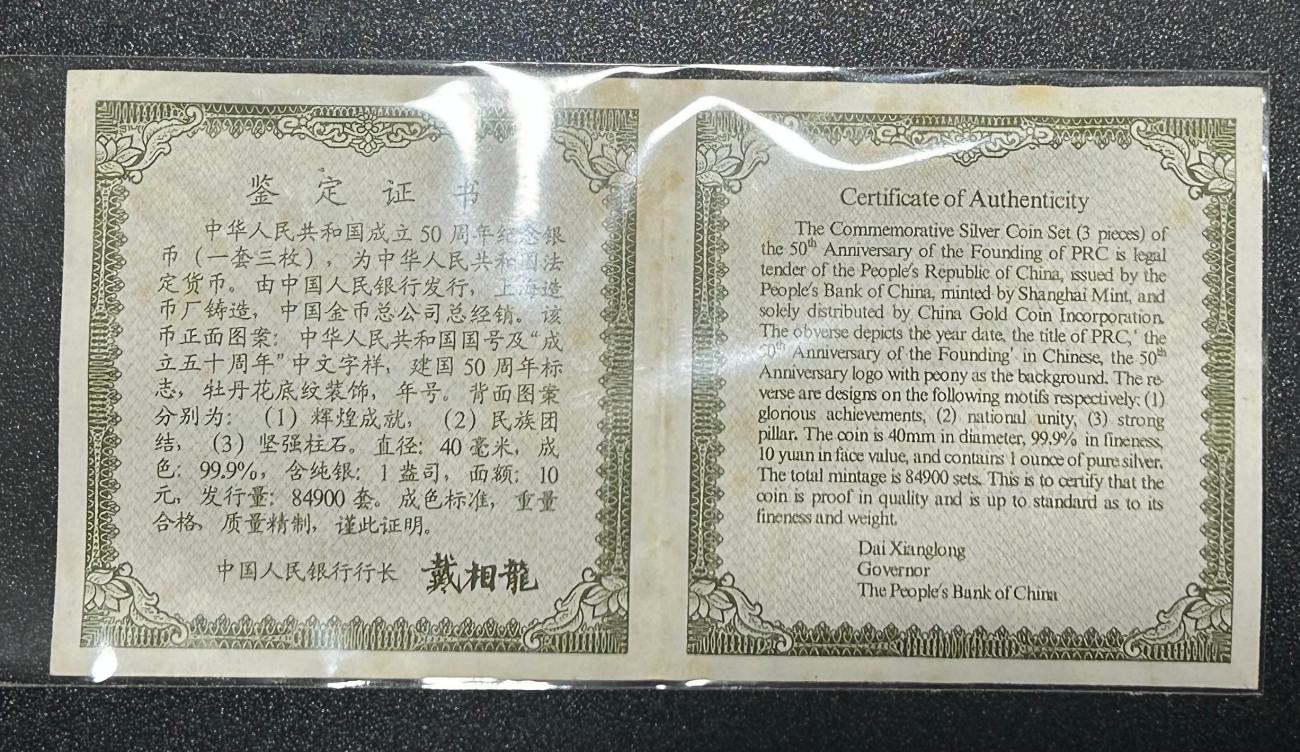 鉴定证书
中华人民共和国成立50周年纪念银
币（一套三枚），为中华人民共和国法
定货币。由中国人民银行发行，上海造
币厂铸造，中国金币总公司总经销。该
币正面图案：中华人民共和国国号及“成
立五十周年”中文字样，建国50周年标
志，牡丹花底纹装饰，年号。背面图案
分别为：（1）辉煌成就，（2）民族团
结，（3）坚强柱石。直径：40毫米，成
色：99.9%，含纯银：1盎司，面额：10
元，发行量：84900套。成色标准，重量
合格，质量精制，谨此证明。
中国人民银行行长 戴相龍
Certificate of Authenticity
The Commemorative Silver Coin Set (3 pieces) of
the 50th Anniversary of the Founding of PRC is legal
tender of the People's Republic of China, issued by the
People's Bank of China, minted by Shanghai Mint, and
solely distributed by China Gold Coin Incorporation.
The obverse depicts the year date, the title of PRC,' the
50th Anniversary of the Founding' in Chinese, the 50th
Anniversary logo with peony as the background. The re-
verse are designs on the following motifs respectively: (1)
glorious achievements, (2) national unity, (3) strong
pillar. The coin is 40mm in diameter, 99.9% in fineness,
10 yuan in face value, and contains 1 ounce of pure silver.
The total mintage is 84900 sets. This is to certify that the
coin is proof in quality and is up to standard as to its
fineness and weight.
Dai Xianglong
Governor
The People's Bank of China